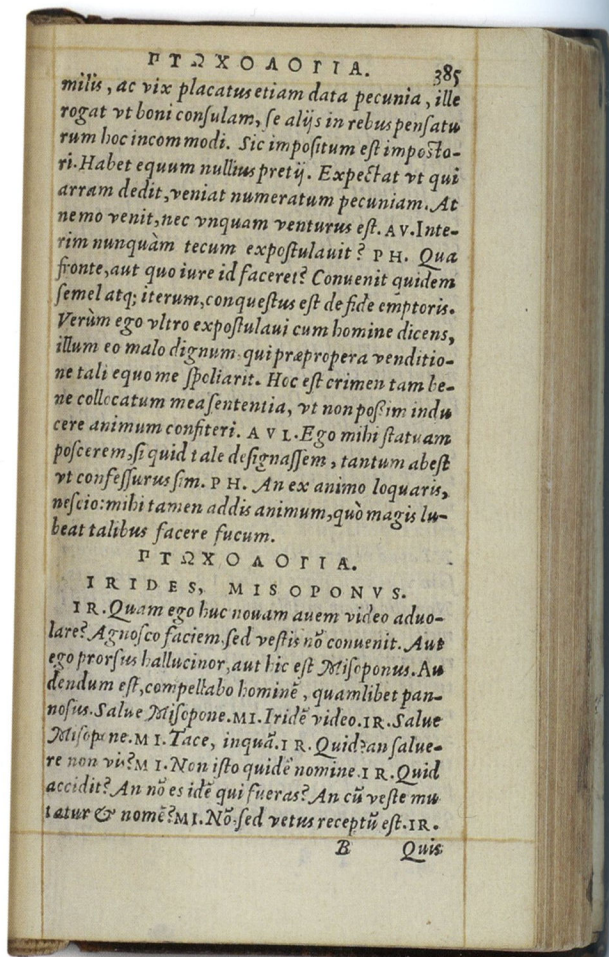 ΠΤΩΧΟΛΟΓΙΑ. 385
milis, ac vix placatus etiam data pecunia, ille
rogat vt boni consulam, se alijs in rebus pensatu
rum hoc incommodi. Sic impositum est imposto-
ri. Habet equum nullius pretij. Expectat vt qui
arram dedit, veniat numeratum pecuniam. At
nemo venit, nec vnquam venturus est. AV. Inte-
rim nunquàm tecum expostulauit? PH. Qua
fronte, aut quo iure id faceret? Convenit quidem
semel atq; iterum, conquestus est de fide emptoris.
Verùm ego vltro expostulavi cum homine dicens,
illum eo malo dignum, qui præpropera venditio-
ne tali equo me spoliarit. Hoc est crimen tam be-
ne collocatum mea sententia, vt non possim indu
cere animum confiteri. AVL. Ego mihi statuam
poscerem, si quid tale designassem, tantum abest
vt confessurus sim. PH. An ex animo loquaris,
nescio: mihi tamen addis animum, quò magis lu-
beat talibus facere fucum.
ΠΤΩΧΟΛΟΓΙΑ.
IRIDES, MISOPONVS.
IR. Quam ego huc nouam auem video aduo-
lare? Agnosco faciem, sed vestis nō convenit. Aut
ego prorsus hallucinor, aut hic est Misoponus. Au
dendum est, compellabo hominē, quamlibet pan-
nosus. Salue Misopone. MI. Iridē video. IR. Salue
Misopone. MI. Tace, inquā. IR. Quid? an salue-
re non vis? MI. Non isto quidē nomine. IR. Quid
accidit? An nō es idē qui fueras? An cū veste mu
tatur & nomē? MI. Nō, sed vetus receptū est. IR.
B Quis